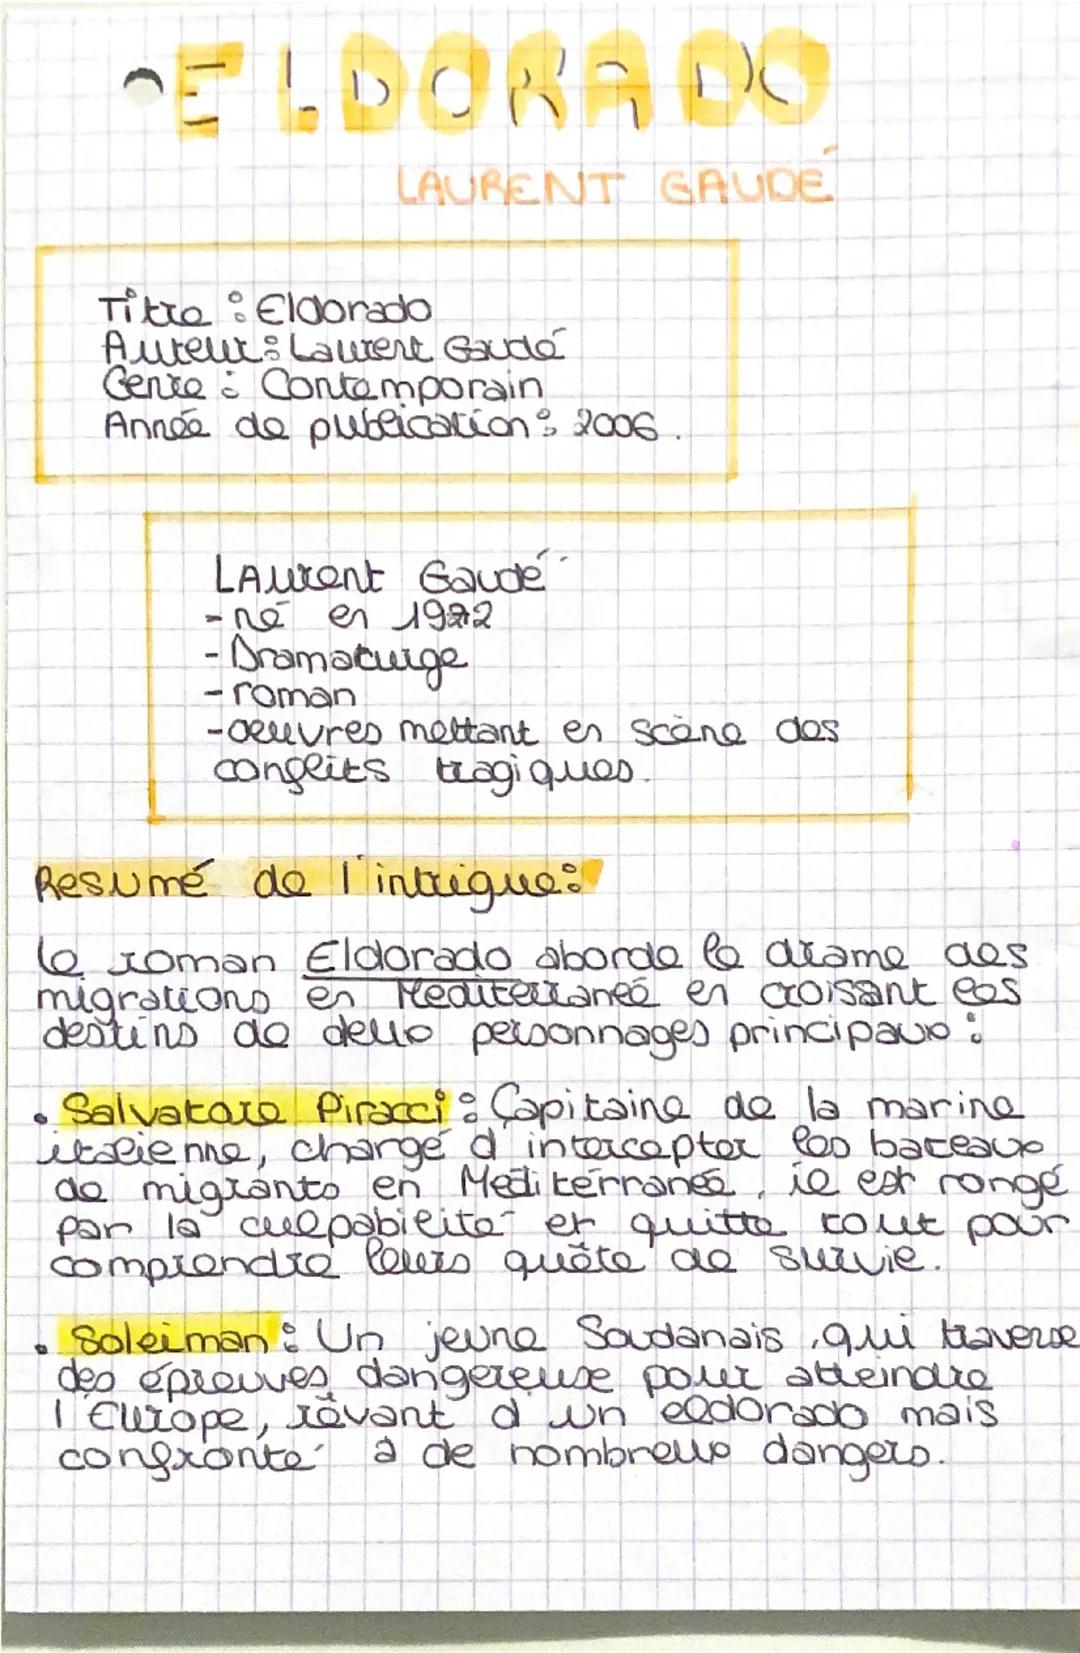 ELDORADO
LAURENT GAUDÉ
Titre : Eldorado
Auteur : Laurent Gaudé
Genre : Contemporain
Année de publication : 2006.
LAurent Gaudé
- né en 1972
- Dramaturge
- roman
- oeuvres mettant en scène des
conflits tragiques.
Résumé de l'intrigue :
Le roman Eldorado aborde le drame des
migrations en Méditerranée en croisant les
destins de deux personnages principaux :
• Salvatore Piracci : Capitaine de la marine
italienne, chargé d'intercepter les bateaux
de migrants en Méditerranée, il est rongé
par la culpabilité et quitte tout pour
comprendre leurs quête de survie.
• Soleiman : Un jeune Soudanais, qui traverse
des épreuves dangereuse pour atteindre
l'Europe, rêvant d'un eldorado mais
confronté à de nombreux dangers.